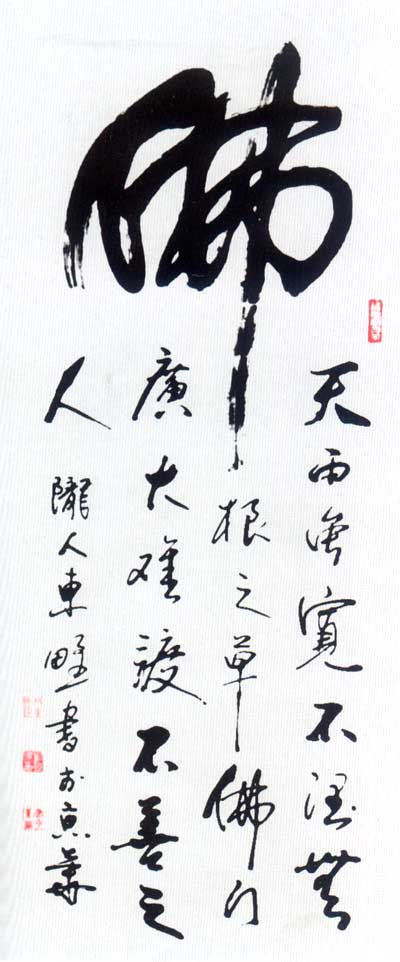 佛
天雨雖寬不潤無
根之草佛门
廣大難渡不善之
人
隴人東野書於京華